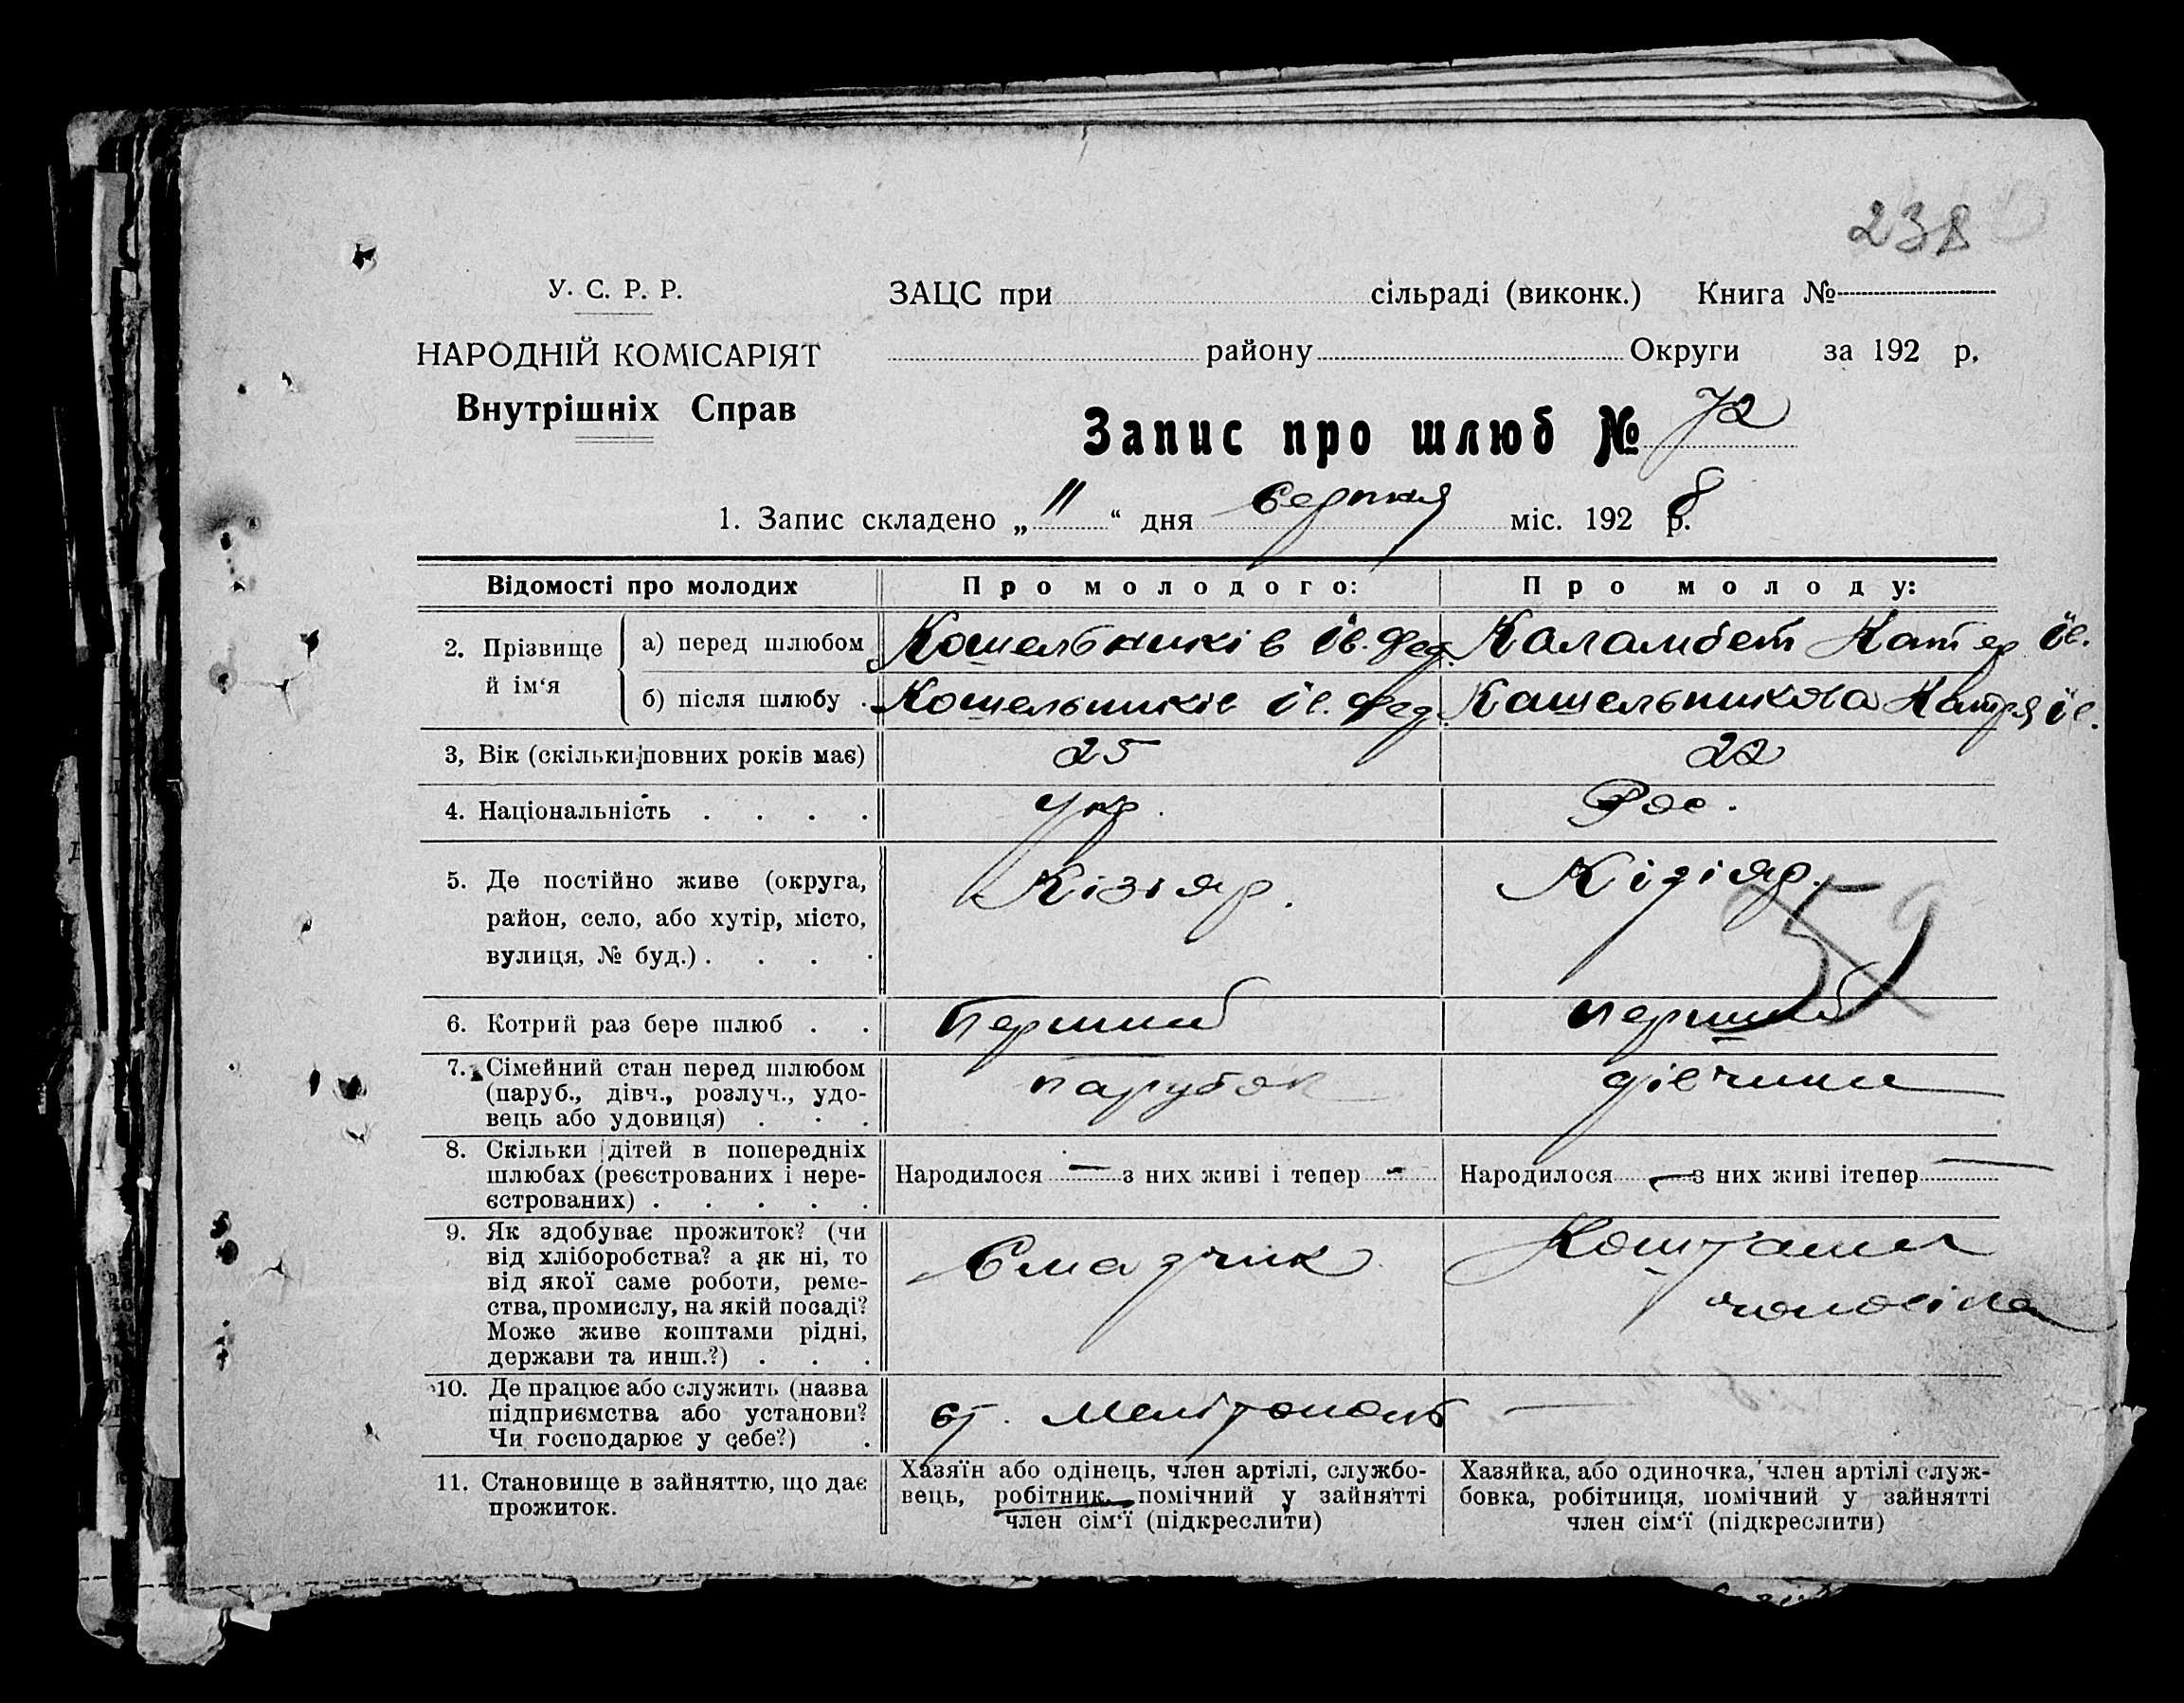 238
У. С. Р. Р.
НАРОДНІЙ КОМІСАРІЯТ
Внутрішніх Справ
ЗАЦС при сільраді (виконк.) Книга №
району Округи за 192 р.
Запис про шлюб № 72
1. Запис складено „ 11 “ дня Серпня міс. 192 8 р.
Відомості про молодих
Про молодого:
Про молоду:
2. Прізвище й ім‘я
а) перед шлюбом
Кошельників Ів. Фед.
Каламбет Катер. Ів.
б) після шлюбу .
Кошельників Ів. Фед.
Кашельникова Катря Ів.
3, Вік (скільки повних років має)
25
22
4. Національність . . . .
Укр.
Рос.
5. Де постійно живе (округа,
район, село, або хутір, місто,
вулиця, № буд.) . . . .
Кізіяр.
Кізіяр.
59
6. Котрий раз бере шлюб . .
перший
перший
7. Сімейний стан перед шлюбом
(паруб., дівч., розлуч., удо-
вець або удовиця) . . .
парубок
дівчина
8. Скільки дітей в попередніх
шлюбах (реєстрованих і нере-
єстрованих) . . . . .
Народилося — з них живі і тепер -
Народилося — з них живі ітепер —
9. Як здобуває прожиток? (чи
від хліборобства? а як ні, то
від якої саме роботи, реме-
ства, промислу, на якій посаді?
Може живе коштами рідні,
держави та инш.?) . . .
Смазчик
Коштами
чоловіка
10. Де працює або служить (назва
підприємства або установи?
Чи господарює у себе?) .
ст. Мелітополь
—
11. Становище в зайняттю, що дає
прожиток.
Хазяїн або одінець, член артілі, службо-
вець, робітник, помічний у зайнятті
член сім‘ї (підкреслити)
Хазяйка, або одиночка, член артілі служ-
бовка, робітниця, помічний у зайнятті
член сім‘ї (підкреслити)